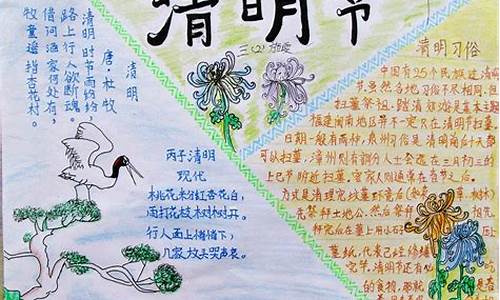 清明节
三（2）
清明
唐·杜牧
清明时节雨纷纷，
路上行人欲断魂。
借问酒家何处有，
牧童遥指杏花村。
丙子清明
现代
桃花米分红杏花白，
雨打花枝树树开。
行人面上情情下，
几家放头哭声哀。
清明习俗
中国有25个民族过清明
节，虽然各地习俗不尽相同，但
扫墓祭祖、踏清郊游是基本主题
福建闽南地区并不一定只在清明节扫墓
日期一般有两种，泉州习俗是清明前后十天都
可以扫墓，漳州则有部分人士会选在三月初三的
上巳节附近扫墓，客家则通常在春节之后。
方式是清理完坟墓环境后
先祭拜土地公，然后祭拜
拜完后在墓上用小石
墓纸，代表已经修缮
完毕，清明节还有
的食物，那就